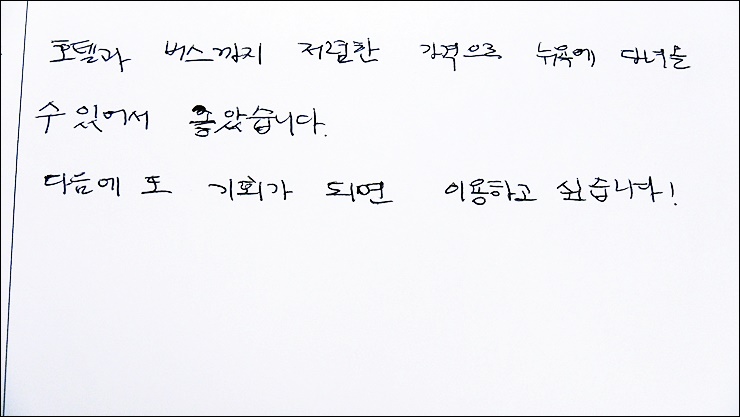 호텔과 버스까지 저렴한 가격으로 뉴욕에 다녀올
수 있어서 좋았습니다.
다음에 또 기회가 되면 이용하고 싶습니다!